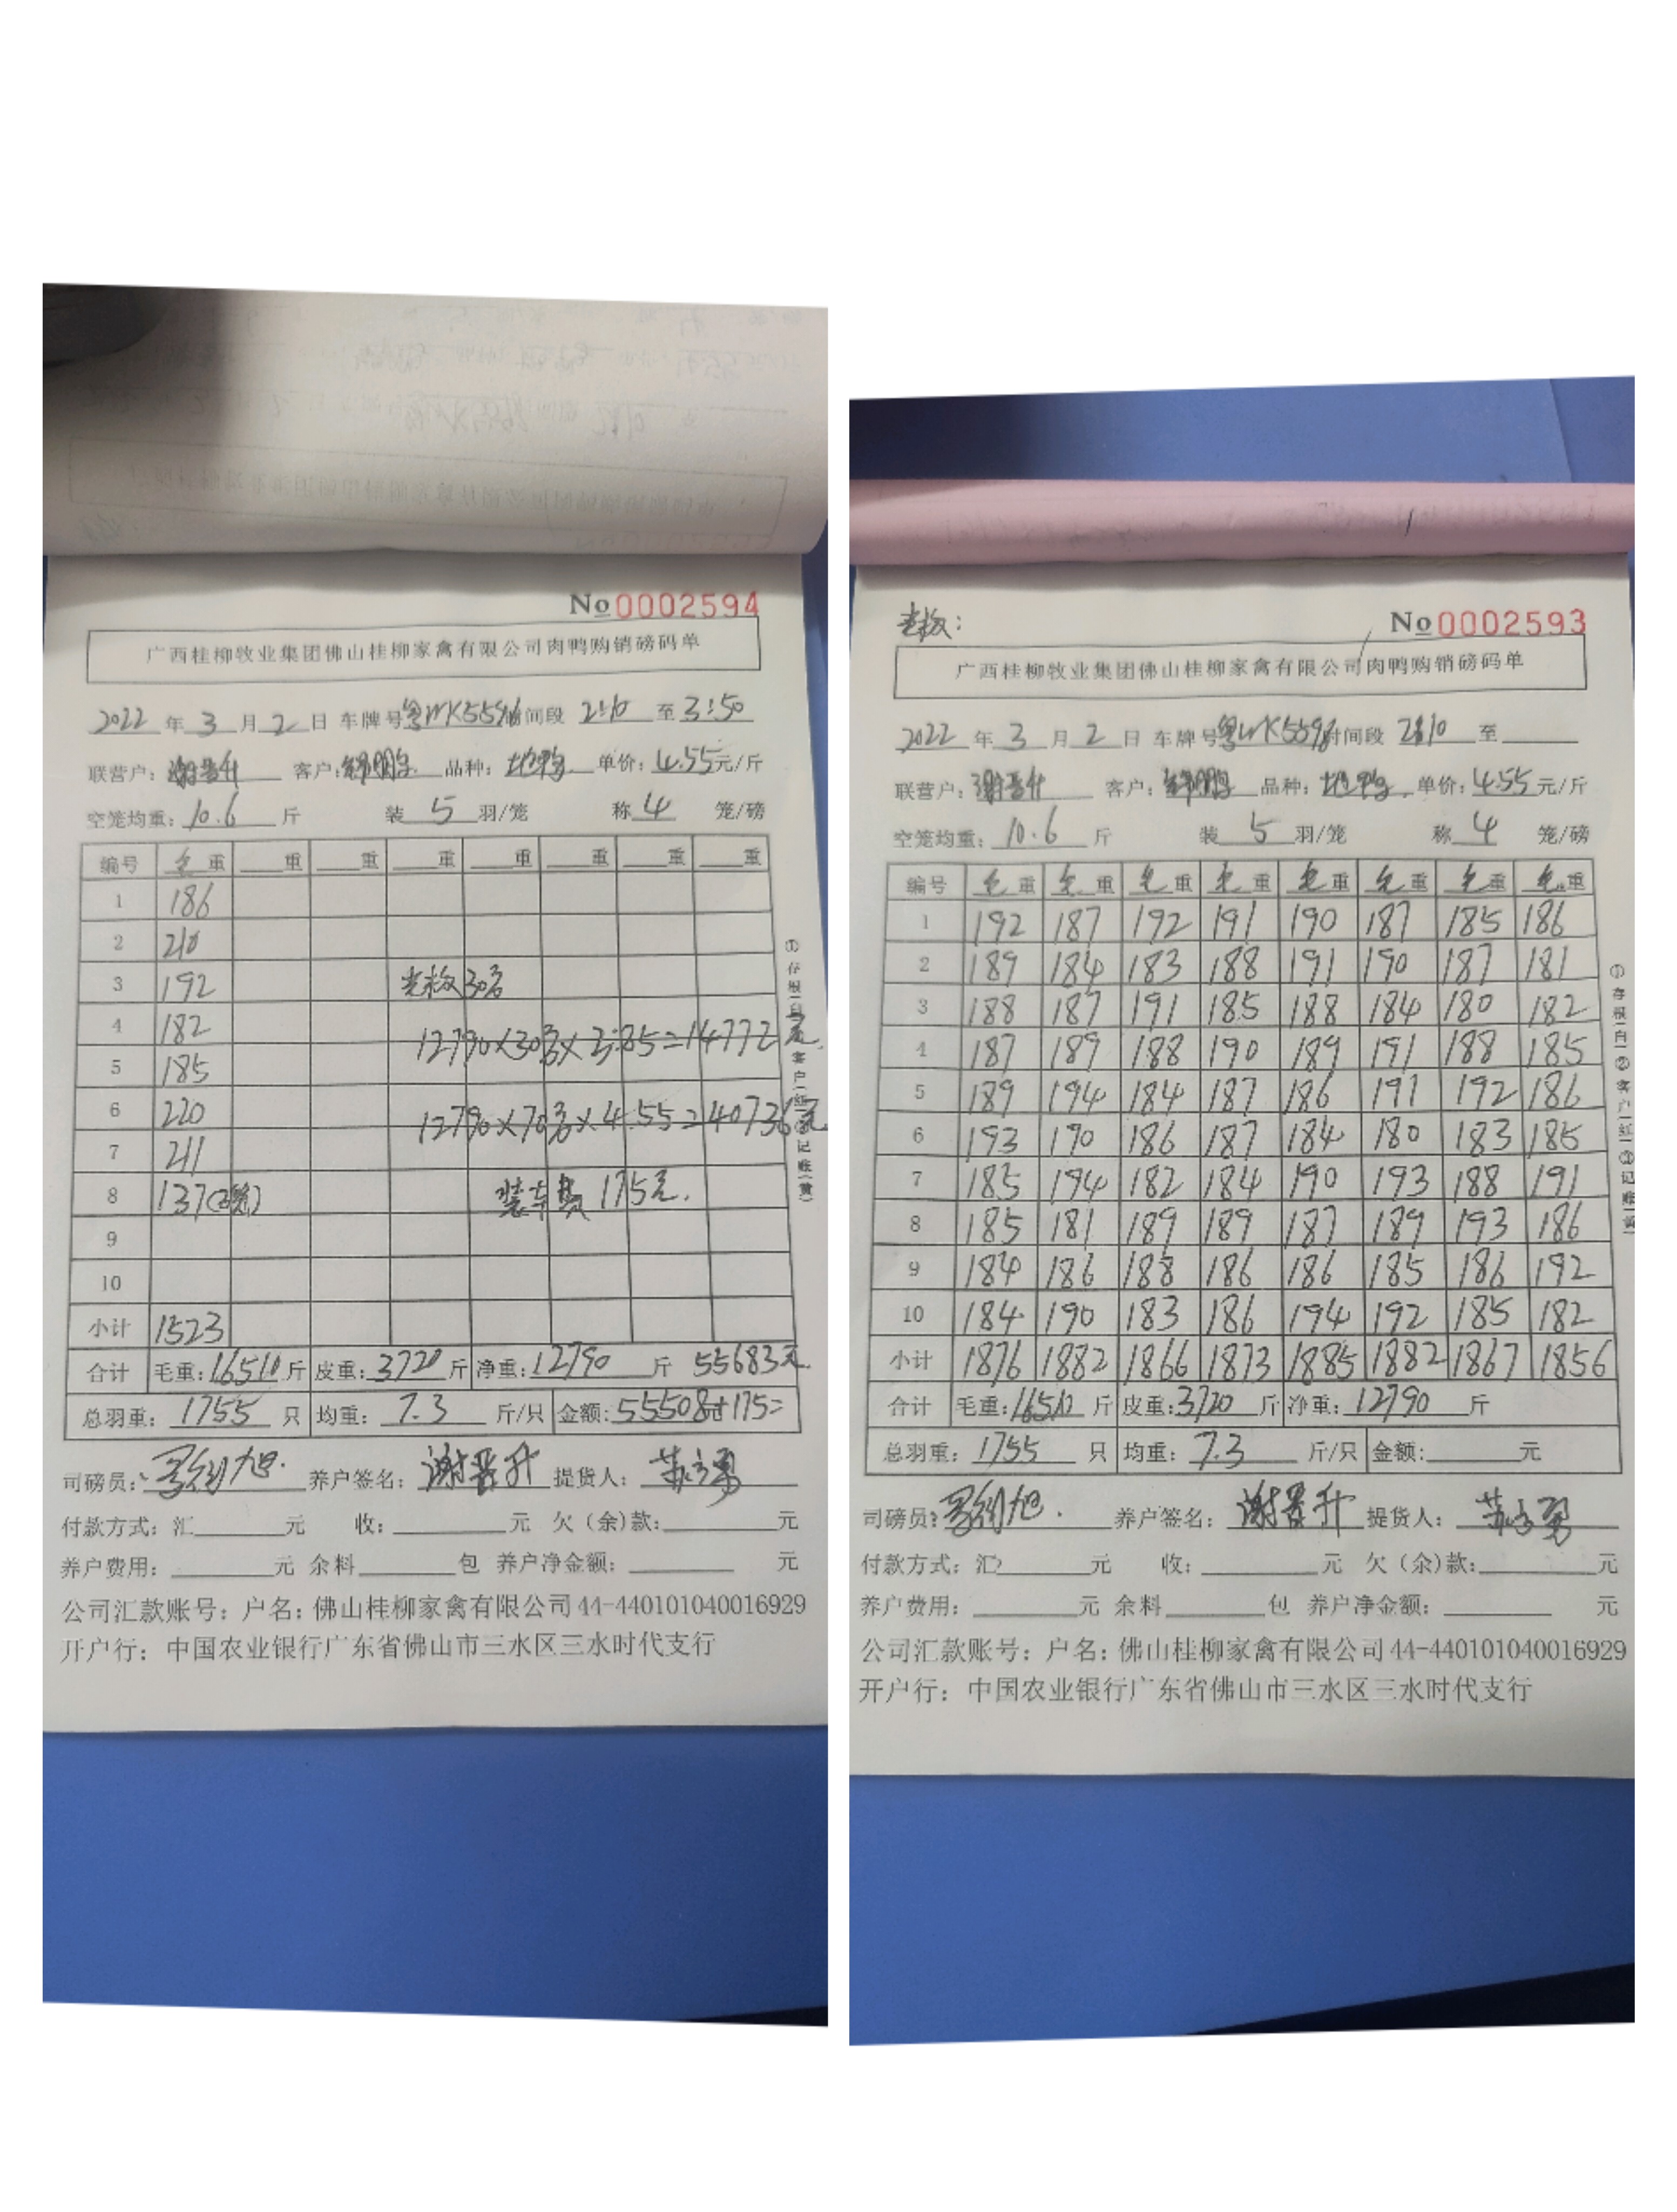 No 0002594
广西桂柳牧业集团佛山桂柳家禽有限公司肉鸭购销磅码单
2022 年 3 月 2 日 车牌号 粤WK5598 时间段 2:10 至 3:50
联营户: 谢晋升 客户: 品种: 单价: 4.55 元/斤
空笼均重: 10.6 斤 装 5 羽/笼 称 4 笼/磅
编号 毛重 重 重 重 重 重 重 重
1 186
2 210
3 192 30%
4 182 12790×30%×3.85=14772元
5 185
6 220 12790×70%×4.55=40736元
7 211
8 137(3笼) 装车费 175元.
9
10
小计 1523
合计 毛重: 16510 斤 皮重: 3720 斤 净重: 12790 斤 55683元
总羽重: 1755 只 均重: 7.3 斤/只 金额: 55508+175=
司磅员: 养户签名: 谢晋升 提货人:
付款方式: 汇 元 收: 元 欠(余)款: 元
养户费用: 元 余料 包 养户净金额: 元
公司汇款账号: 户名: 佛山桂柳家禽有限公司 44-440101040016929
开户行: 中国农业银行广东省佛山市三水区三水时代支行
①存根(白)②客户(红)③记账(黄)
No 0002593
广西桂柳牧业集团佛山桂柳家禽有限公司肉鸭购销磅码单
2022 年 3 月 2 日 车牌号 粤WK5598 时间段 2:10 至
联营户: 谢晋升 客户: 品种: 单价: 4.55 元/斤
空笼均重: 10.6 斤 装 5 羽/笼 称 4 笼/磅
编号 毛重 毛重 毛重 毛重 毛重 毛重 毛重 毛重
1 192 187 192 191 190 187 185 186
2 189 184 183 188 191 190 187 181
3 188 187 191 185 188 184 180 182
4 187 189 188 190 189 191 188 185
5 189 194 184 187 186 191 192 186
6 193 190 186 187 184 180 183 185
7 185 194 182 184 190 193 188 191
8 185 181 189 189 187 189 193 186
9 184 186 188 186 186 185 186 192
10 184 190 183 186 194 192 185 182
小计 1876 1882 1866 1873 1885 1882 1867 1856
合计 毛重: 16510 斤 皮重: 3720 斤 净重: 12790 斤
总羽重: 1755 只 均重: 7.3 斤/只 金额: 元
司磅员: 养户签名: 谢晋升 提货人:
付款方式: 汇 元 收: 元 欠(余)款: 元
养户费用: 元 余料 包 养户净金额: 元
公司汇款账号: 户名: 佛山桂柳家禽有限公司 44-440101040016929
开户行: 中国农业银行广东省佛山市三水区三水时代支行
①存根(白)②客户(红)③记账(黄)